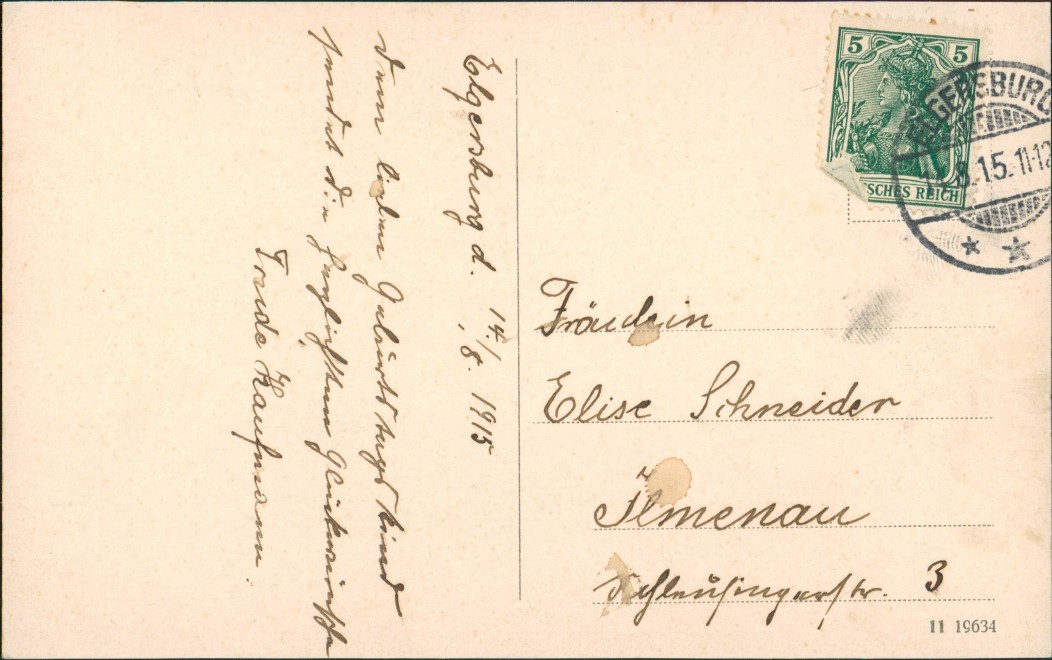 Elgersburg d. 14./8. 1915
Dem lieben Geburtstagskind
sendet die herzlichsten Glückwünsche
Trude Kaufmann.
5 5
SCHES REICH
ELGERSBURG
8.15. 11-12
Fräulein
Elise Schneider
Ilmenau
Schleusingerstr. 3
11 19634